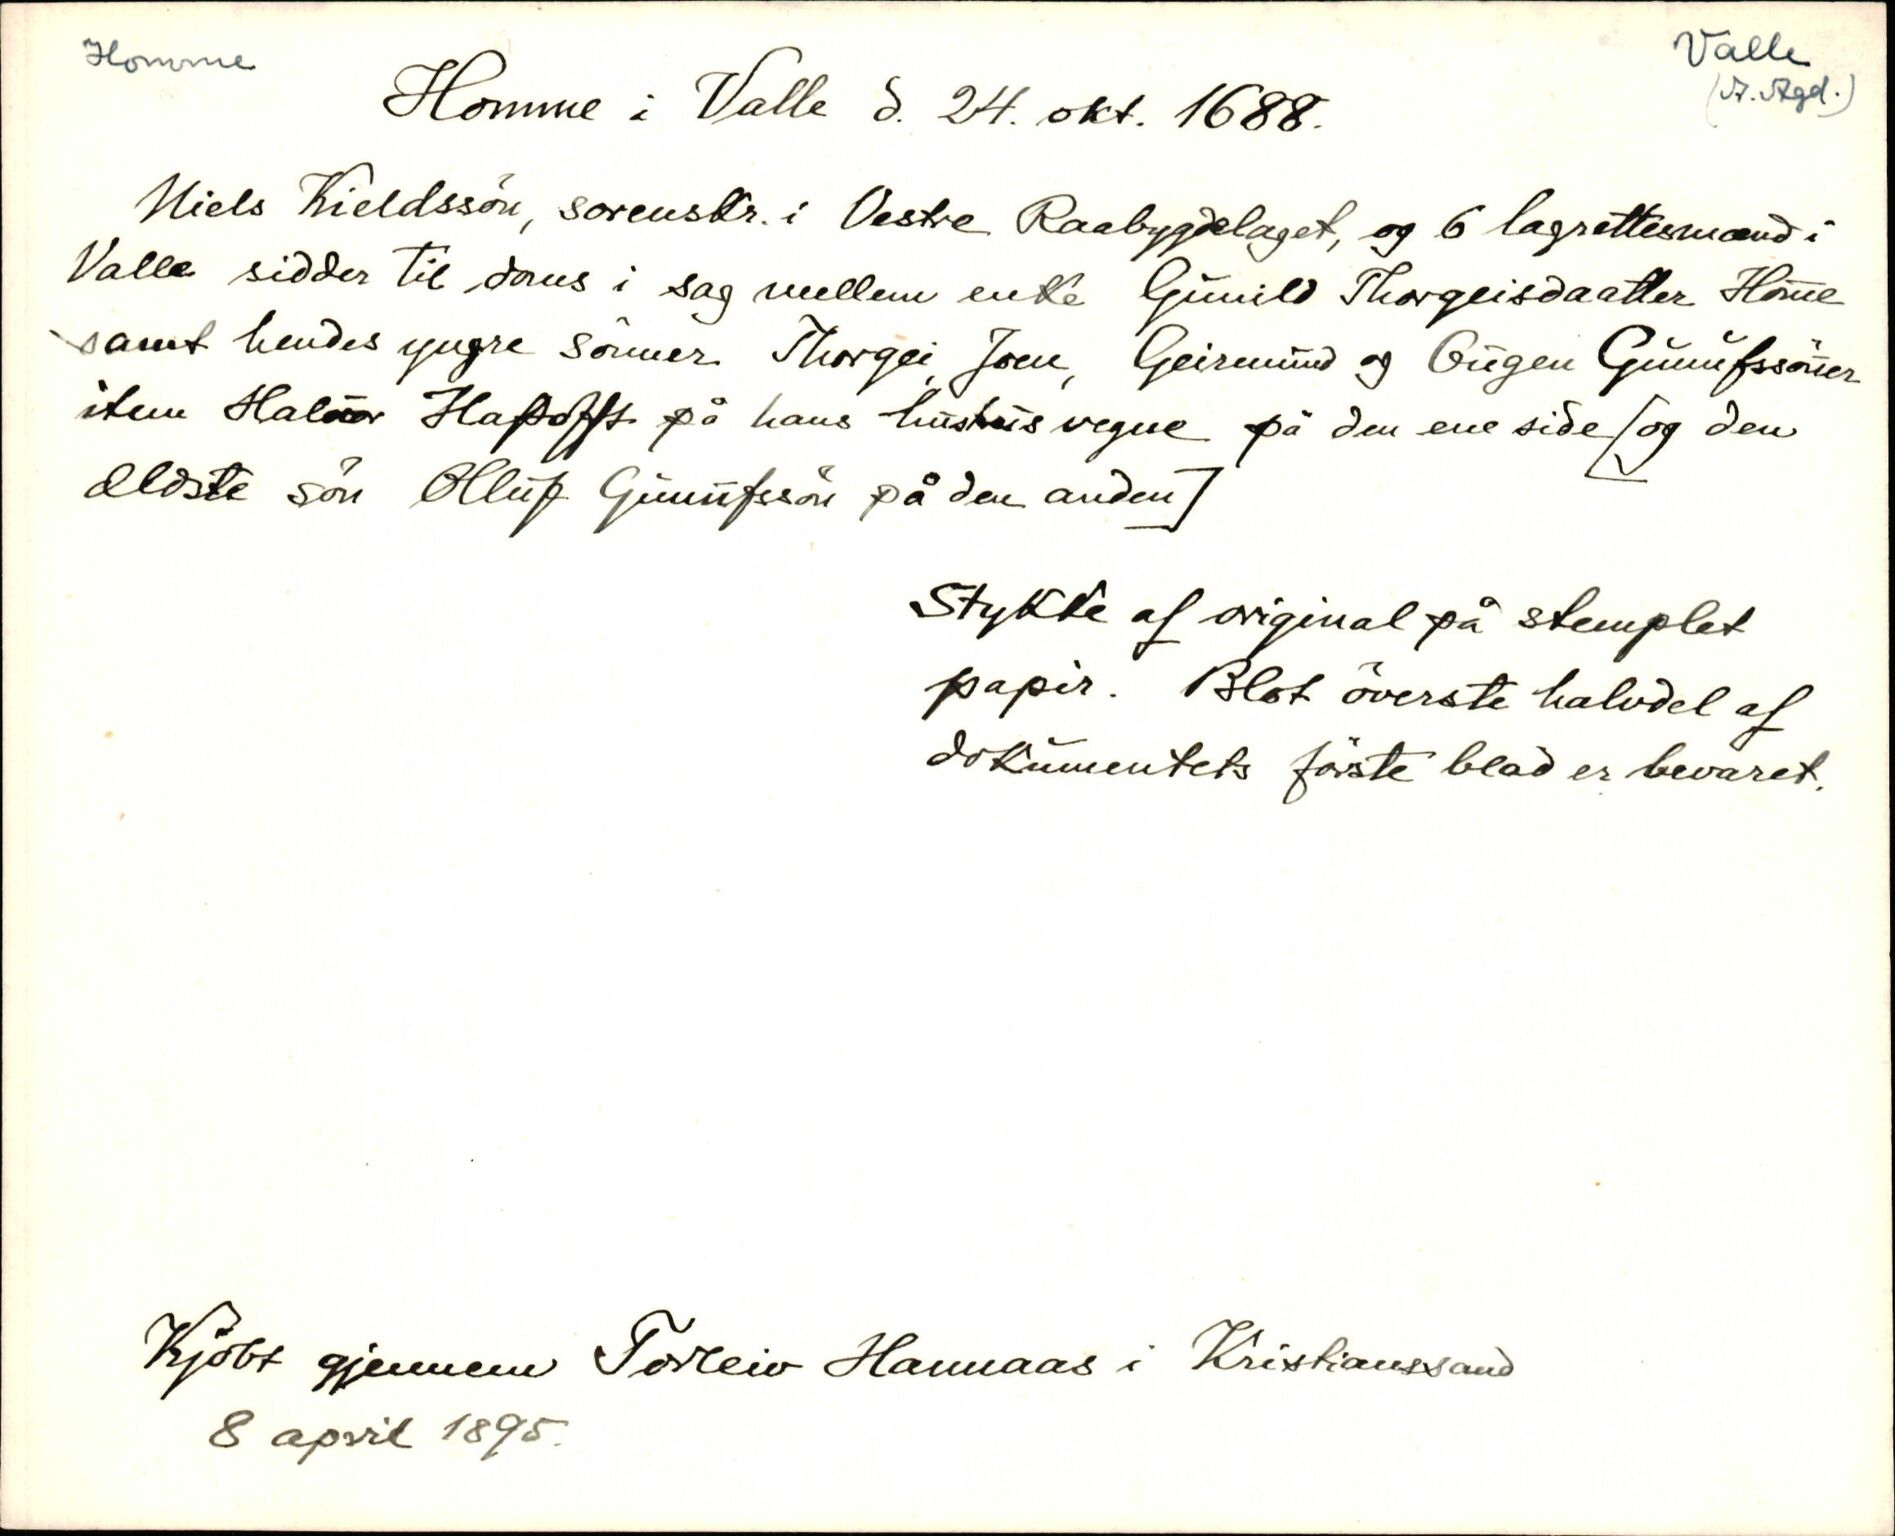 Homme
Valle
(A. Agd.)
Homme i Valle d. 24. okt. 1688.
Niels Kieldssön, sorenskr. i Vestre Raabygdelaget, og 6 lagrettesmænd i
Valle sidder til doms i sag mellem enke Gunild Thorgeisdaatter Hom̄e
samt hendes yngre sönner Thorgei, Joen, Geirmund og Gunnufssön̄er
item Haluor på hans hustrus vegne på den ene side [og den
ældste sön Olluf Gunnufssön på den anden]
Stykke af original på stemplet
papir. Blot överste halvdel af
dokumentets förste blad er bevaret.
Kjöbt gjennem Torleiv Hannaas i Kristianssand
8 april 1895.